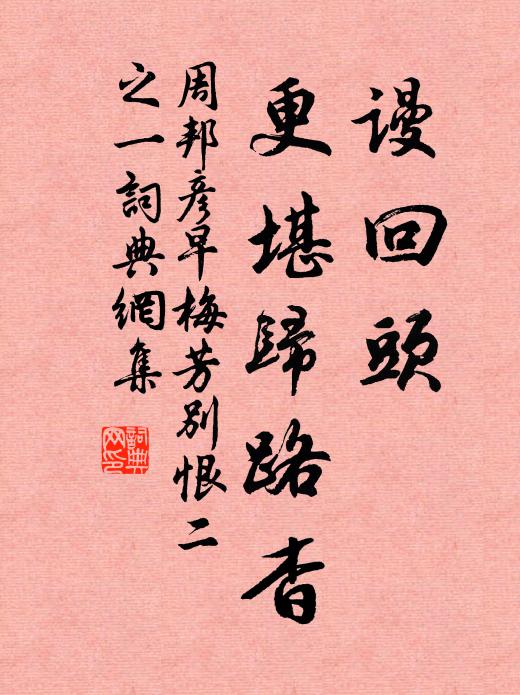 謾回頭
更堪歸路杳
周邦彥早梅芳別恨二
之一詞典網集
詞典网印